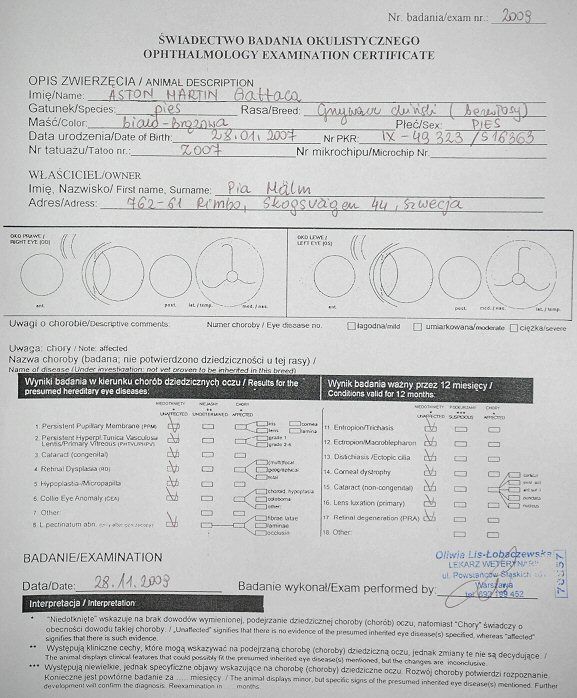 Nr. badania/exam nr.: 2009
ŚWIADECTWO BADANIA OKULISTYCZNEGO
OPHTHALMOLOGY EXAMINATION CERTIFICATE
OPIS ZWIERZĘCIA / ANIMAL DESCRIPTION
Imię/Name: ASTON MARTIN Gattaca
Gatunek/Species: pies Rasa/Breed: Grzywacz chiński (bezwłosy)
Maść/Color: biało-brązowa Płeć/Sex: PIES
Data urodzenia/Date of Birth: 28.01.2007 Nr PKR: IX-49323/S16363
Nr tatuażu/Tatoo nr.: 2007 Nr mikrochipu/Microchip Nr.
WŁAŚCICIEL/OWNER
Imię, Nazwisko/ First name, Surname: Pia Mälm
Adres/Adress: 762-61 Rimbo, Skogsvägen 44, Szwecja
OKO PRAWE / RIGHT EYE (OD) OKO LEWE / LEFT EYE (OS)
ant. post. lat./temp. med./nas. ant. post. lat./temp. med./nas.
Uwagi o chorobie/Descriptive comments: Numer choroby / Eye disease no. łagodna/mild umiarkowana/moderate ciężka/severe
Uwaga: chory / Note: affected
Nazwa choroby (badana; nie potwierdzono dziedziczności u tej rasy) /
Name of disease (Under investigation: not yet proven to be inherited in this breed)
Wyniki badania w kierunku chorób dziedzicznych oczu / Results for the presumed hereditary eye diseases:
NIEDOTKNIĘTY UNAFFECTED NIEJASNY UNDETERMINED CHORY AFFECTED
1. Persistent Pupillary Membrane (PPM) iris cornea lens lamina
2. Persistent Hyperpl.Tunica Vasculosa Lentis/Primary Vitreous (PHTVL/PHPV) grade 1 grade 2-6
3. Cataract (congenital)
4. Retinal Dysplasia (RD) (multi)focal geographical total
5. Hypoplastia-/Micropapilla
6. Collie Eye Anomaly (CEA) choroid. hypoplasia coloboma other:
7. Other:
8. L.pectinatum abn. (only after gonioscopy) fibrae latae laminae occlusion
Wynik badania ważny przez 12 miesięcy / Conditions valid for 12 months:
NIEDOTKNIĘTY UNAFFECTED PODEJRZANY SUSPICIOUS CHORY AFFECTED
11. Entropion/Trichasis
12. Ectropion/Macroblepharon
13. Distichiasis /Ectopic cilia
14. Corneal dystrophy
15. Cataract (non-congenital) cortical post. pol. ant. sut. l. punctata nucleus
16. Lens luxation (primary)
17. Retinal degeneration (PRA)
18. Other:
BADANIE/EXAMINATION
Data/Date: 28.11.2009 Badanie wykonał/Exam performed by:
Oliwia Lis-Łobaczewska
LEKARZ WETERYNARII
ul. Powstańców Śląskich
Warszawa
tel. 692 199 452
Interpretacja / Interpretation:
* "Niedotknięte" wskazuje na brak dowodów wymienionej, podejrzanie dziedzicznej choroby (chorób) oczu, natomiast "Chory" świadczy o
obecności dowodu takiej choroby. / „Unaffected" signifies that there is no evidence of the presumed inherited eye disease(s) specified, whereas "affected"
signifies that there is such evidence.
** Występują kliniczne cechy, które mogą wskazywać na podejrzaną chorobę (choroby) dziedziczną oczu, jednak zmiany te nie są decydujące. /
The animal displays clinical features that could possibly fit the presumed inherited eye disease(s) mentioned, but the changes are inconclusive.
*** Występują niewielkie, jednak specyficzne objawy wskazujące na chorobę (choroby) dziedziczne oczu. Rozwój choroby potwierdzi rozpoznanie.
Konieczne jest powtórne badanie za ..... miesięcy / The animal displays minor, but specific signs of the presumed inherited eye disease(s) mentioned. Further
development will confirm the diagnosis. Reexamination in ... months.